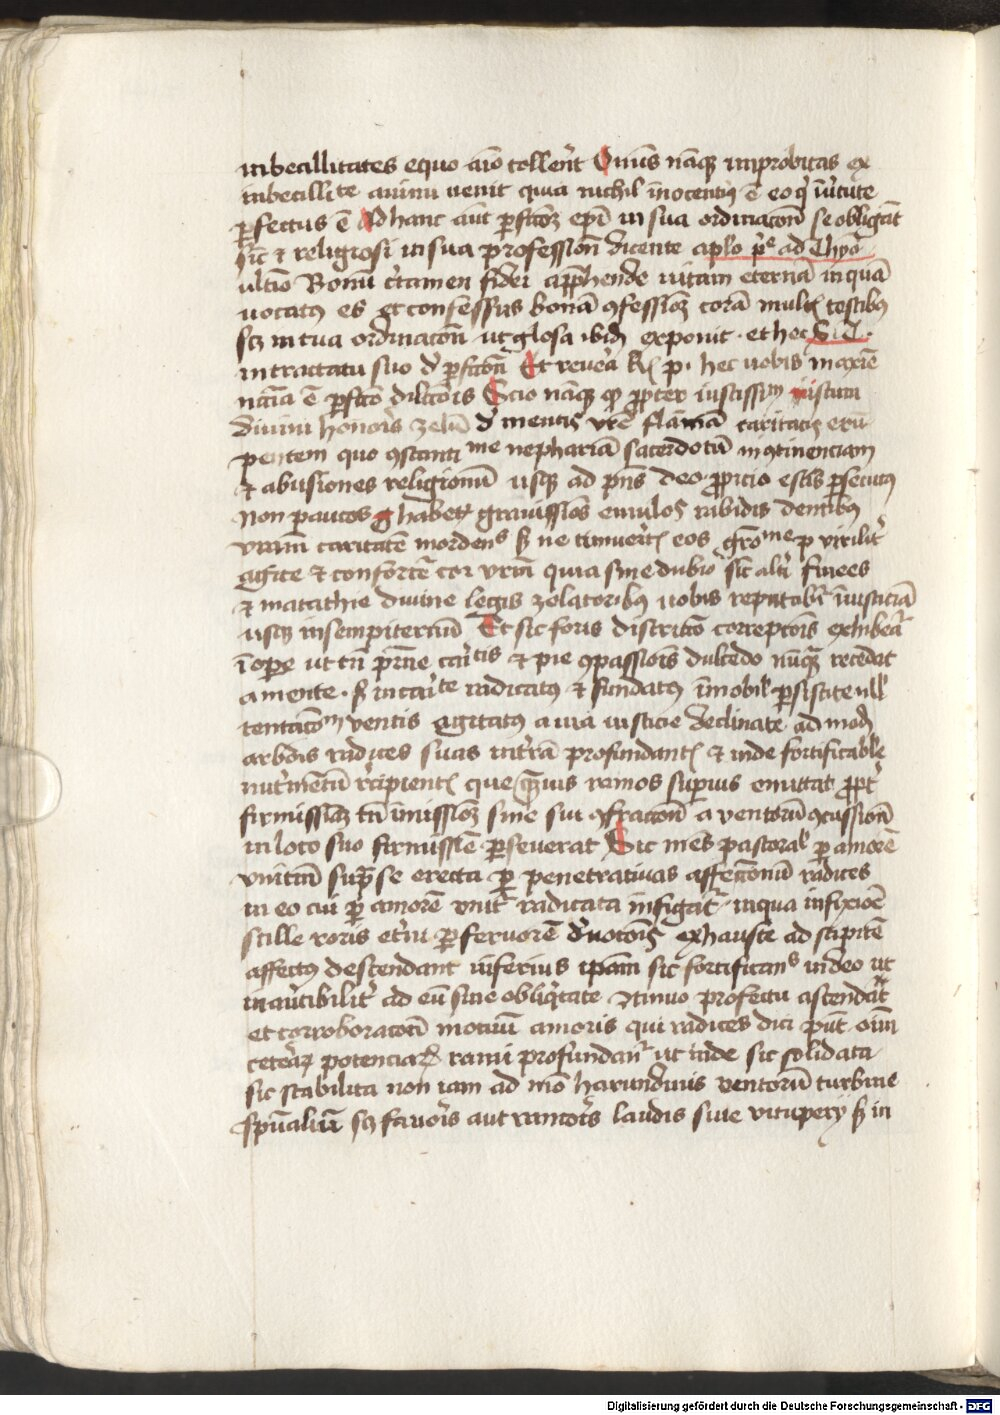 inbecillitates equo aīo toller̄t Oimīs nāqꝫ improbitas ex
inbecillitᵗe animi uenit quia nichil īnocentiꝰ ē eo qͥ v̓tute
ꝑfectus ē Ad hanc aūt ꝑfcōꝫ ep̄i in sua ordinacōn̄ se obligāt
sic̄ ⁊ religiosi in sua professiōn̄ dicente aplo pᵒ ad Thyō
ultīo Bonū c̓tamen fidei apphende uitam eternā in quā
uocatꝰ es et confessus bonā ꝯfessiōꝫ corā multꝭ testibꝰ
scꝫ in tua ordinacōn̄ ut glosa ibid̄ exponit · et hec S. T.
in tractatu suo d̓ ꝑfcōn̄ Et reuēa Rꝭ p. hec uobis maxīe
nc̄cīa ē ꝑfcō dilcōīs Scio nāqꝫ ꝙ ꝓpter iustissīm istum
diuini honoris zelū d̓ mentis vr̄e flāmā caritatis eru
pentem quo ꝯstantime nephariā sacerdotū incontinenciam
⁊ abusiones religionū usqꝫ ad pn̄s deo ꝓpicio estis ꝑsecutus
Non paucos g̓ habetꝭ grauissīos emulos rabidis dentibꝰ
vr̄am caritatē mordenˢ sꝫ ne timuer̄tꝭ eos gͬōme p viriliꞇ̓
agite ⁊ confortē cor vr̄m quia sine dubio sic̄ alt̓i finees
⁊ matathie diuine legis zelatoribꝰ uobis reputabꞇ̓ iusticiā
usqꝫ insempiternū Et sic foris discrecō correpcōīs exhibeaꞇ̓
ī opꝑe ut tn̄ pr̄ne cariᵗis ⁊ pie ꝯpassiōīs dulcedo nūqͣꝫ recedat
a mente · sꝫ in cariᵗe radicatꝰ ⁊ fundatꝰ īmobilꝭ ꝑsistite ullꝭ
tentacōm̄ ventis agitatꝰ a uia iusticie declinate ad mod̄
arbōis radices suas int̓rā profundantꝭ ⁊ inde fortificabͥle
nut̓mētū rͤcipientꝭ que qͣuis ramos supius emittat ꝓpꞇ̓
firmissīaꝫ tn̄ īmissiōꝫ sine sui ꝯfraccōn̄ a ventorū ꝯcussiōn̄
in loco suo firmissīe ꝑseuerat Sic mēs pastoralꝭ ꝑ amorē
vnitiuū supͣ se erecta ꝑ penetratiuas affeccōnū radices
in eo cui ꝑ amorē vniꞇ̓ radicata infigaꞇ̓ in qua infixiōē
stille roris et̓ni ꝑ feruorē deuotōīs exhauste ad stipitē
affectꝰ descendant inferius ip̄am sic fortificanˢ in deo ut
inaūtibiliꞇ̓ ad eū sine obliqͥtate ꝯtinuo profectu ascendāt
et corroboracōī motiuū amoris qui radices dici pn̄t · oīm
cet̓arꝫ potenciarꝫ rami profundanꞇ̓ ut inde sic solidata
sic stabilita non iam ad mō harundinis ventorū turbine
spūaliū scꝫ fauoris aut rancoris laudis siue vituperij sꝫ in